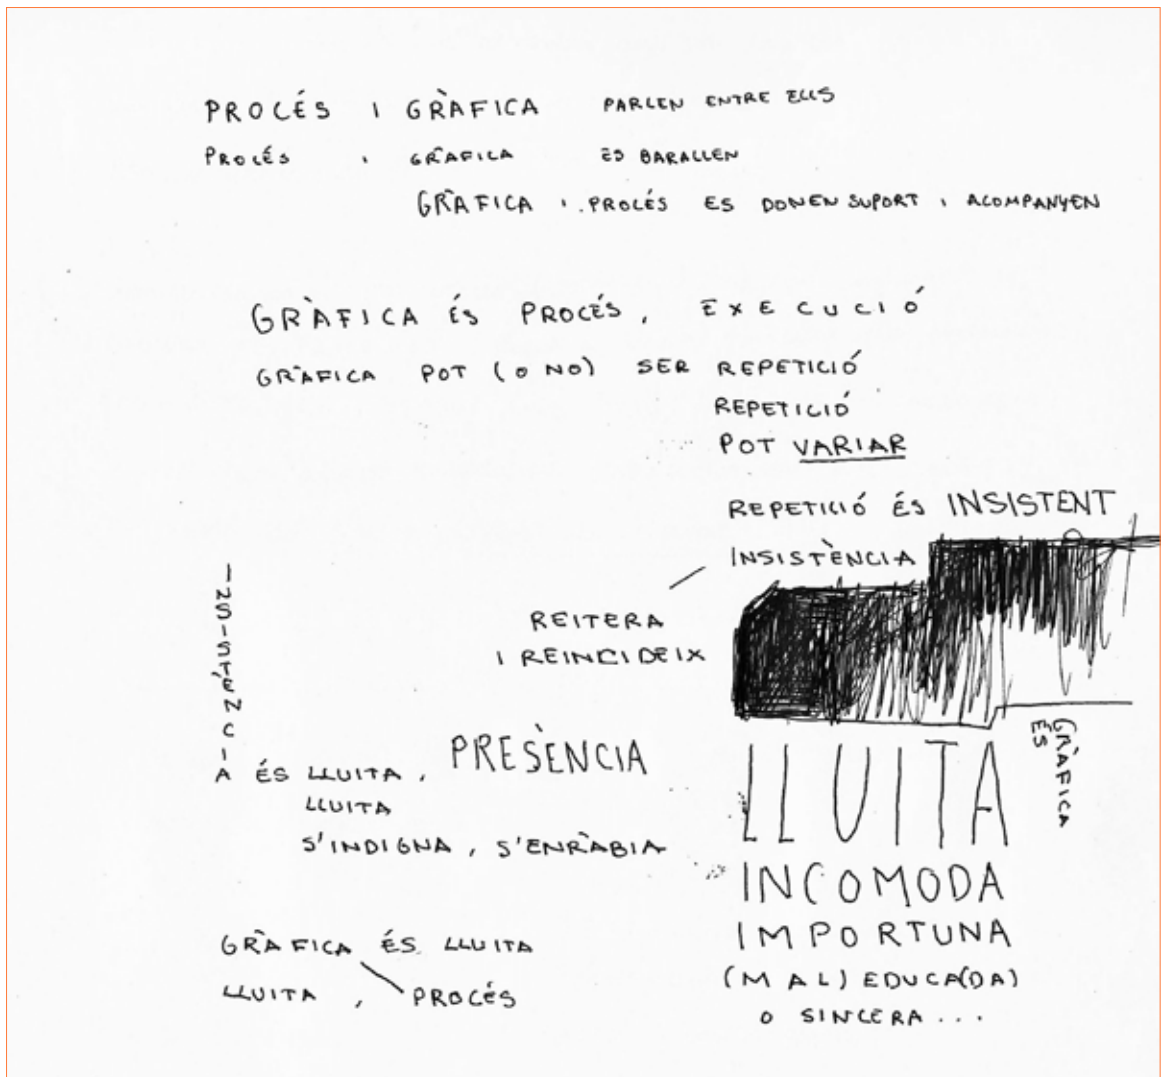 PROCÉS I GRÀFICA PARLEN ENTRE ELLS
PROCÉS I GRÀFICA ES BARALLEN
GRÀFICA I PROCÉS ES DONEN SUPORT I ACOMPANYEN
GRÀFICA ÉS PROCÉS, EXECUCIÓ
GRÀFICA POT (O NO) SER REPETICIÓ
REPETICIÓ
POT VARIAR
REPETICIÓ ÉS INSISTENT
INSISTÈNCIA
REITERA
I REINCIDEIX
INSISTÈNCIA
ÉS LLUITA, PRESÈNCIA
LLUITA
S'INDIGNA, S'ENRÀBIA
GRÀFICA ÉS LLUITA
LLUITA, PROCÉS
GRÀFICA
ÉS
LLUITA
INCOMODA
IMPORTUNA
(MAL) EDUCA(DA)
O SINCERA...